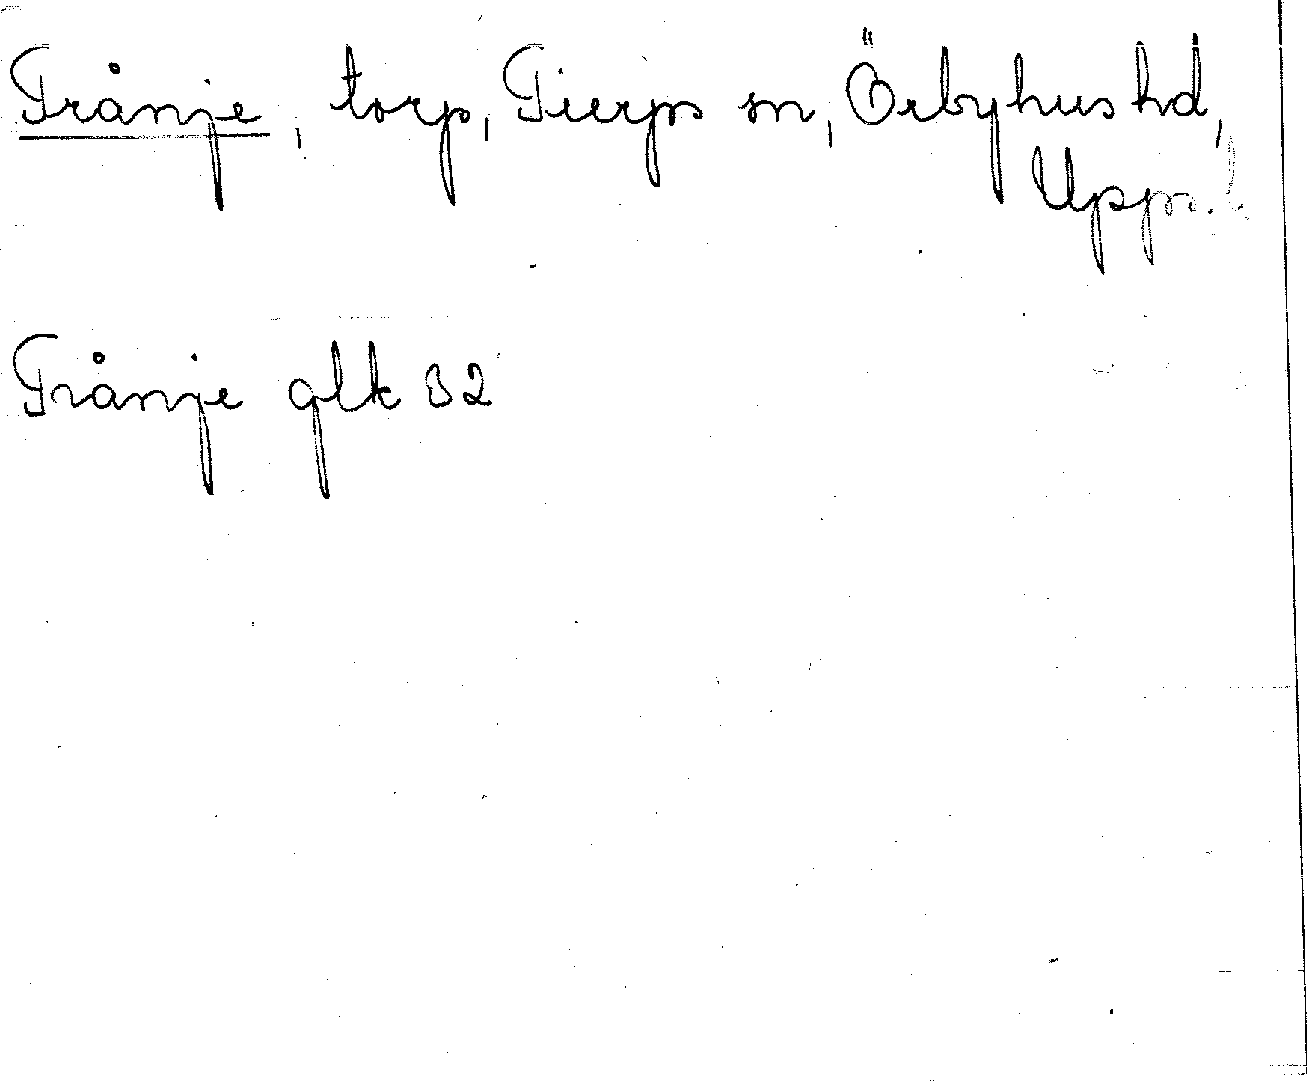 Trånje, torp, Tierps sn, Örbyhus hd,
Upps. l.
Trånje glk 32